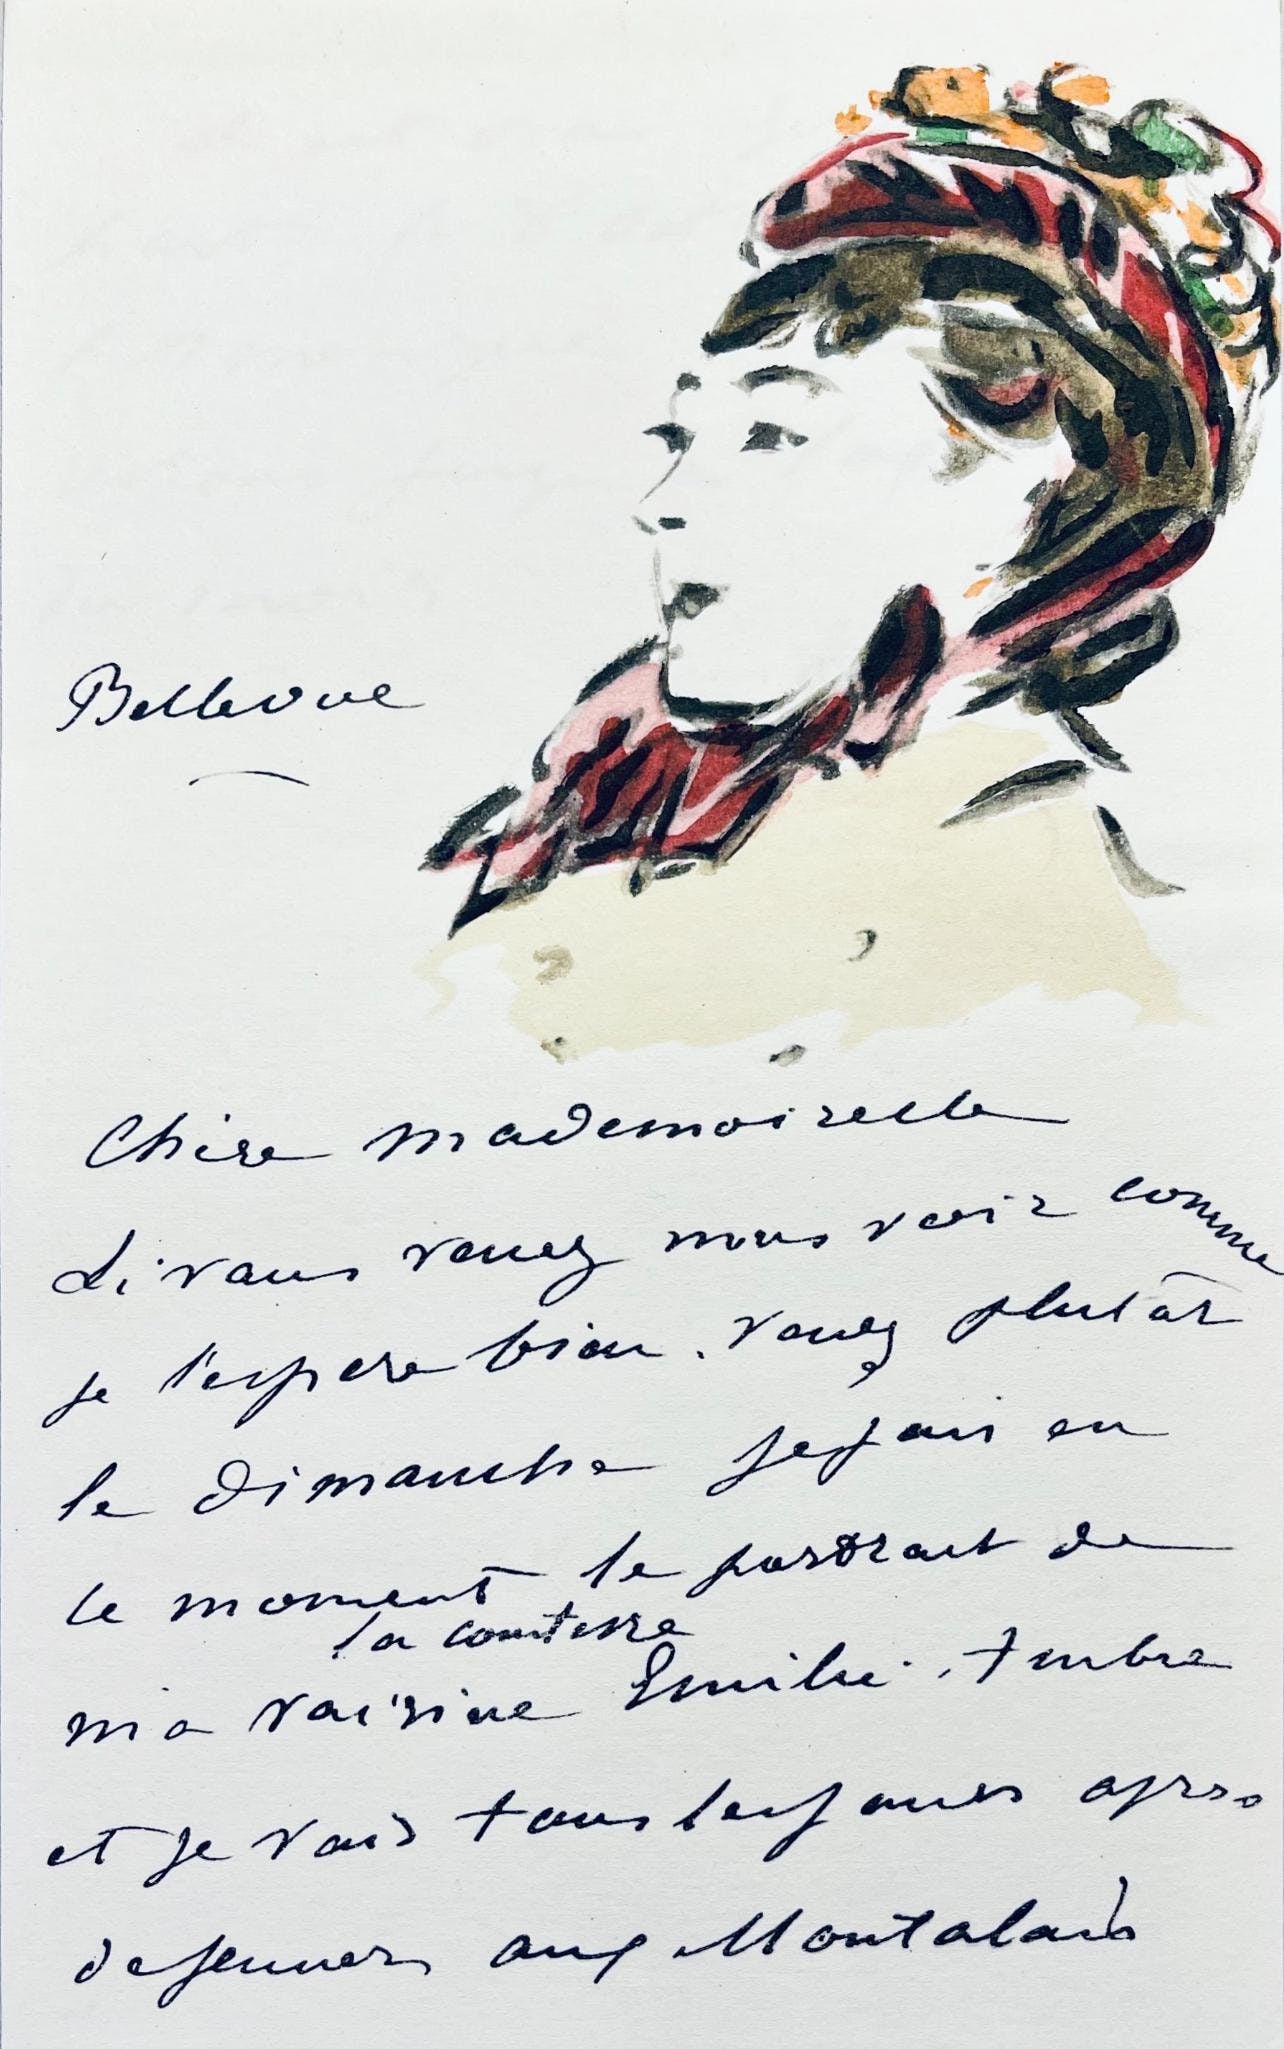 Bellevue
Chère Mademoiselle
Si vous venez nous voir comme
je l'espère bien. venez plutôt
le dimanche je fais en
ce moment le portrait de
la comtesse
ma voisine Emilie. Ambre
et je vais tous les jours après
dejeuner aux Montalais